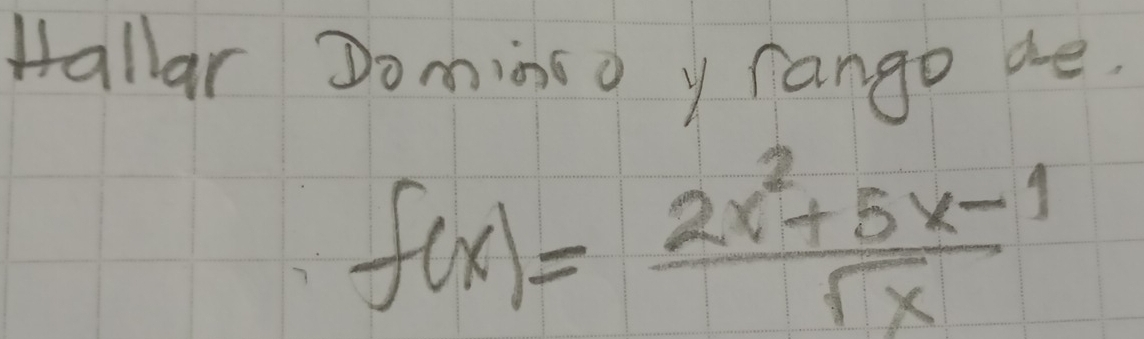 Hallar Dominio y rango de.
f(x) = \frac{2x^2+5x-1}{\sqrt{x}}